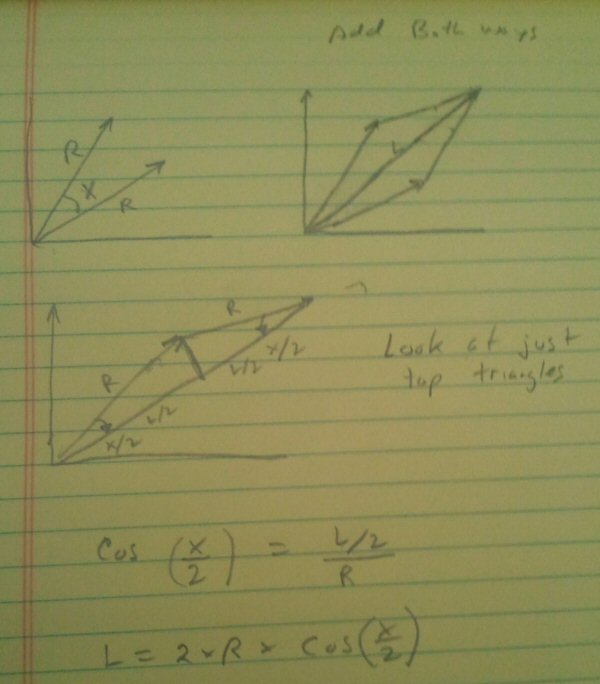 Add Both ways
R
X
R
L
R
R
X/2
L/2
L/2
X/2
Look at just
top triangles
Cos (X/2) = L/2 / R
L = 2 * R * Cos(X/2)